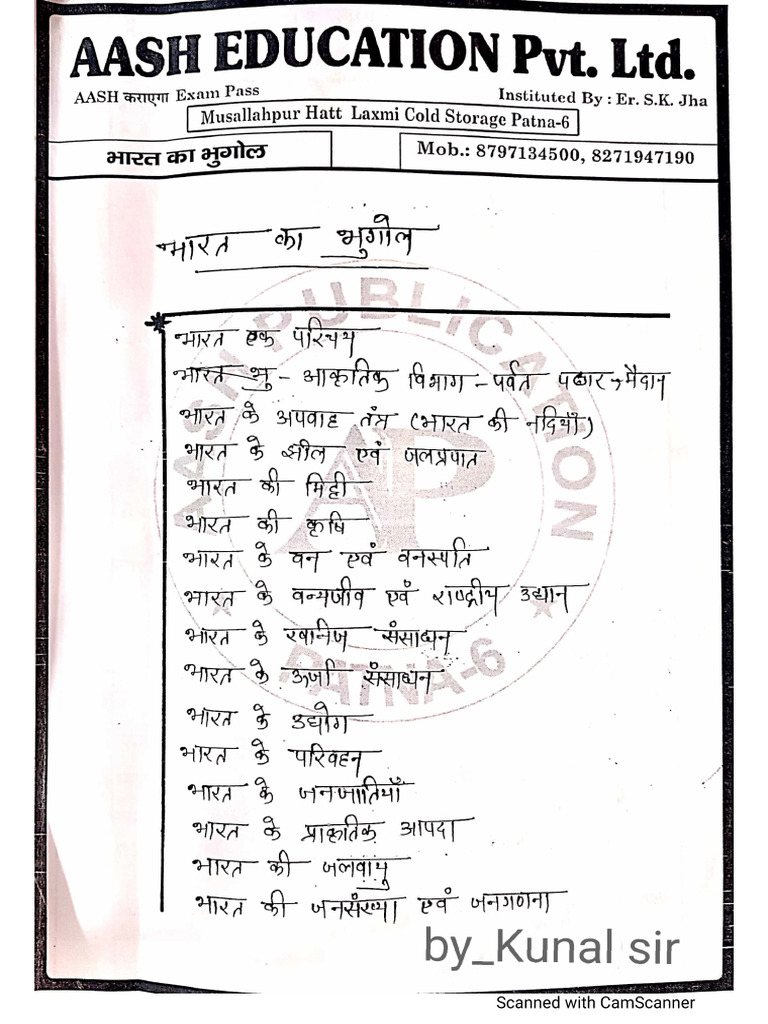 AASH EDUCATION Pvt. Ltd.
AASH कराएगा Exam Pass
Instituted By : Er. S.K. Jha
Musallahpur Hatt Laxmi Cold Storage Patna-6
भारत का भुगोल
Mob.: 8797134500, 8271947190
भारत का भुगोल
भारत एक परिचय
भारत भु - आकृतिक विभाग - पर्वत पठार, मैदान
भारत के अपवाह तंत्र (भारत की नदियाँ)
भारत के झील एवं जलप्रपात
भारत की मिट्टी
भारत की कृषि
भारत के वन एवं वनस्पति
भारत के वन्यजीव एवं राष्ट्रीय उद्यान
भारत के खनिज संसाधन
भारत के ऊर्जा संसाधन
भारत के उद्योग
भारत के परिवहन
भारत के जनजातियाँ
भारत के प्राकृतिक आपदा
भारत की जलवायु
भारत की जनसंख्या एवं जनगणना
AASH PUBLICATION
AP
PATNA-6
by_Kunal sir
Scanned with CamScanner